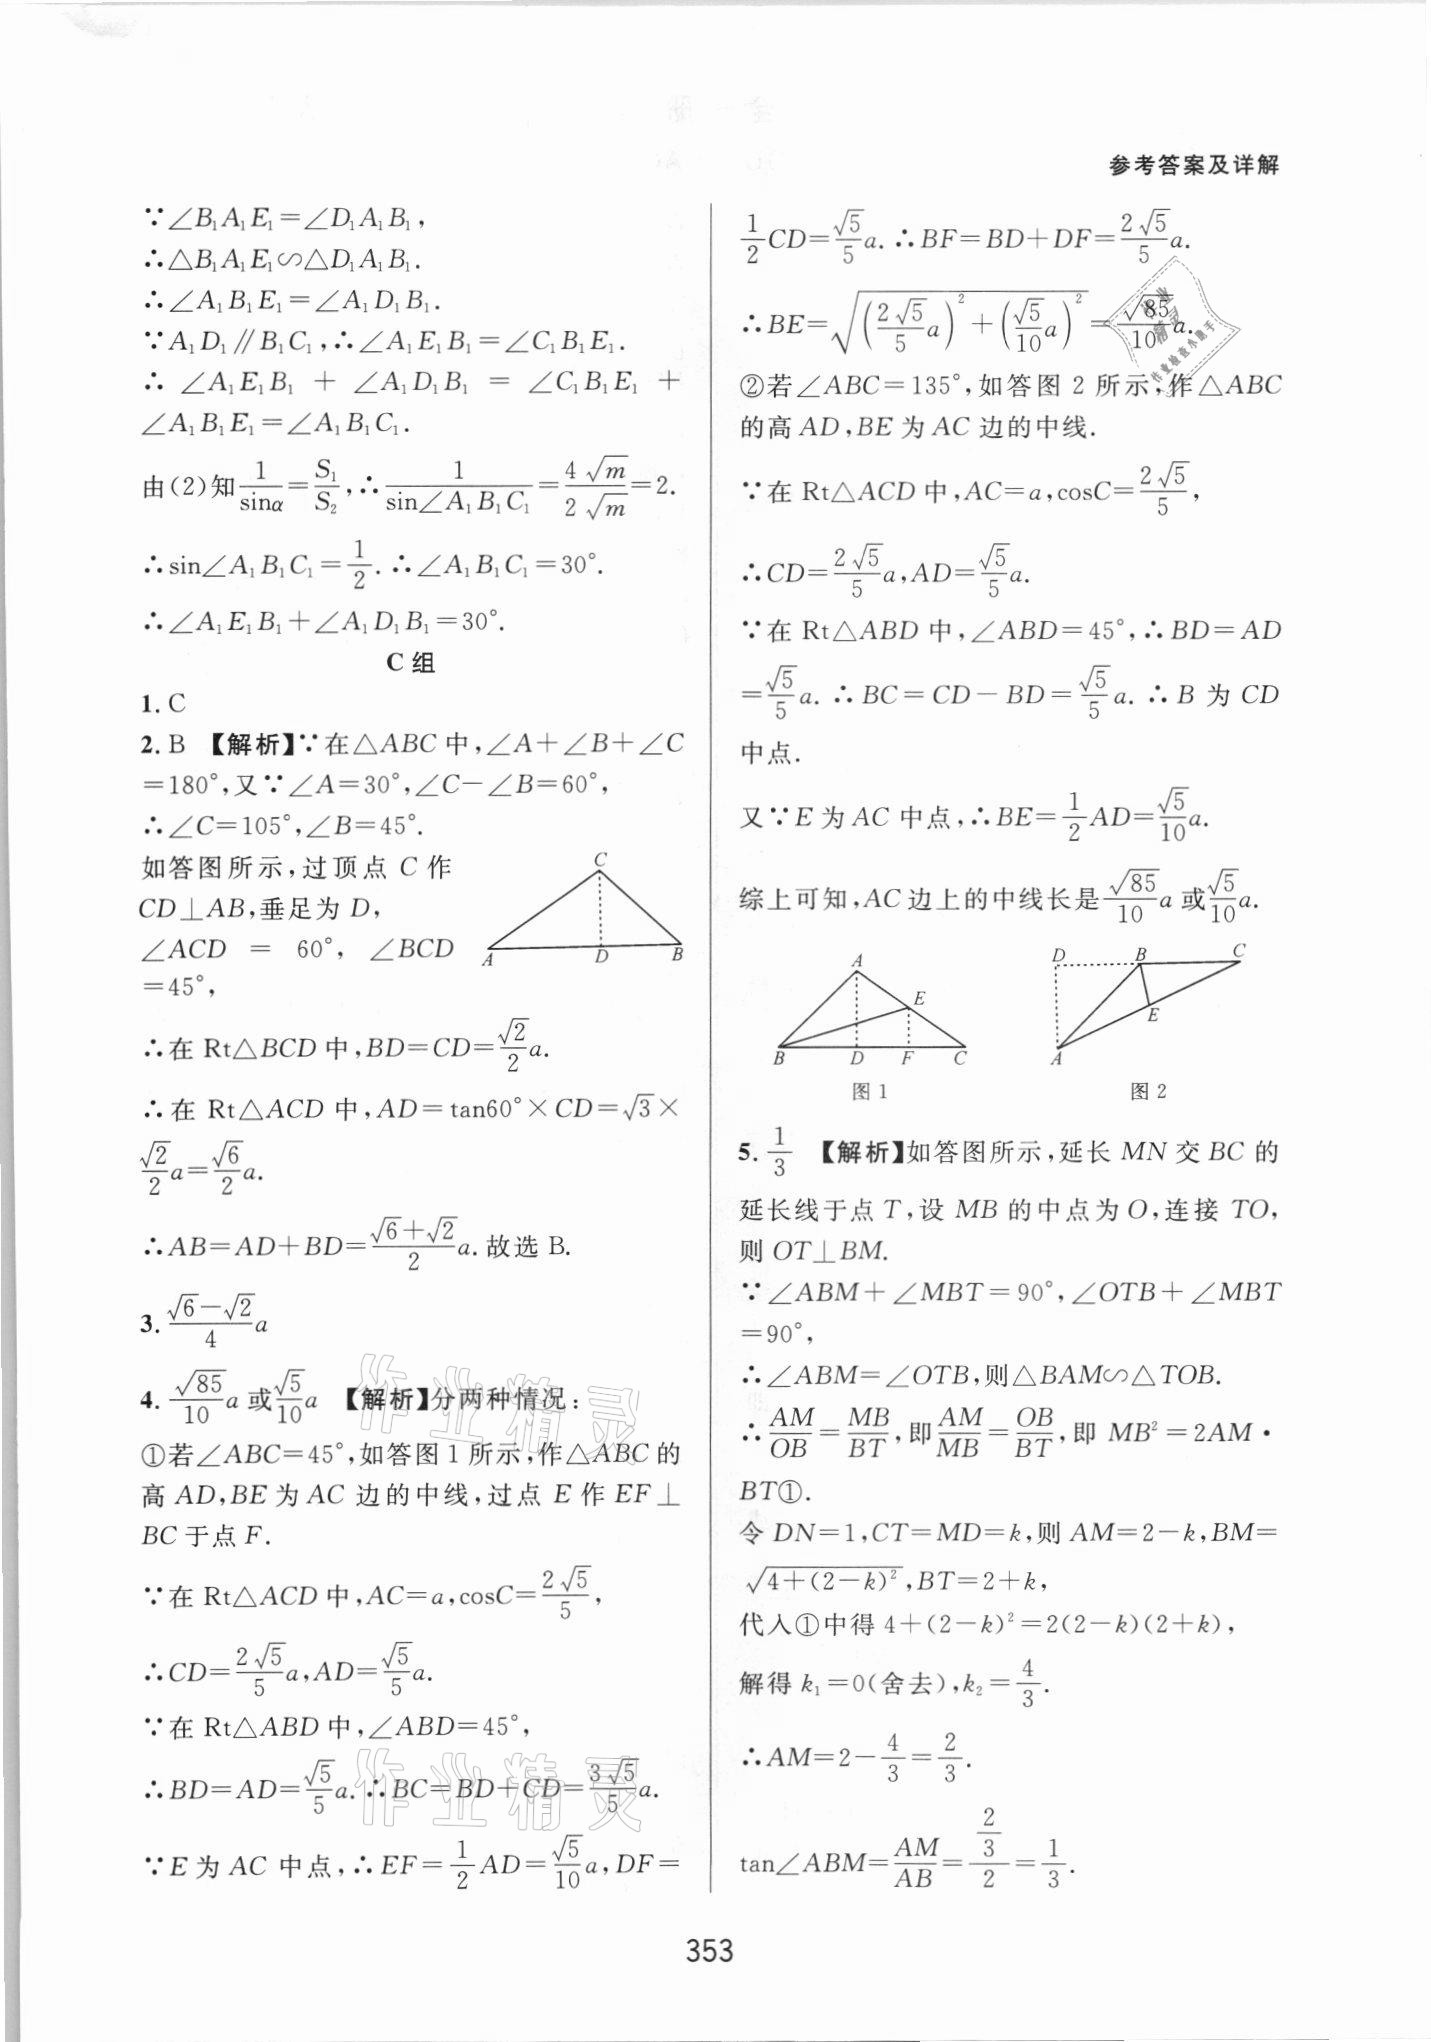 参考答案及详解
∵∠B₁A₁E₁=∠D₁A₁B₁,
∴△B₁A₁E₁∽△D₁A₁B₁.
∴∠A₁B₁E₁=∠A₁D₁B₁.
∵A₁D₁∥B₁C₁,∴∠A₁E₁B₁=∠C₁B₁E₁.
∴ ∠A₁E₁B₁ + ∠A₁D₁B₁ = ∠C₁B₁E₁ +
∠A₁B₁E₁=∠A₁B₁C₁.
由(2)知1/sinα=S₁/S₂,∴1/sin∠A₁B₁C₁=4√m/2√m=2.
∴sin∠A₁B₁C₁=1/2.∴∠A₁B₁C₁=30°.
∴∠A₁E₁B₁+∠A₁D₁B₁=30°.
C组
1. C
2. B 【解析】∵在△ABC中,∠A+∠B+∠C
=180°,又∵∠A=30°,∠C-∠B=60°,
∴∠C=105°,∠B=45°.
如答图所示,过顶点C作
CD⊥AB,垂足为D,
∠ACD = 60°, ∠BCD
=45°,
C
A D B
∴在Rt△BCD中,BD=CD=√2/2a.
∴在Rt△ACD中,AD=tan60°×CD=√3×
√2/2a=√6/2a.
∴AB=AD+BD=(√6+√2)/2a.故选B.
3. (√6-√2)/4a
4. √85/10a或√5/10a 【解析】分两种情况:
①若∠ABC=45°,如答图1所示,作△ABC的
高AD,BE为AC边的中线,过点E作EF⊥
BC于点F.
∵在Rt△ACD中,AC=a,cosC=2√5/5,
∴CD=2√5/5a,AD=√5/5a.
∵在Rt△ABD中,∠ABD=45°,
∴BD=AD=√5/5a.∴BC=BD+CD=3√5/5a.
∵E为AC中点,∴EF=1/2AD=√5/10a,DF=
1/2CD=√5/5a.∴BF=BD+DF=2√5/5a.
∴BE=√((2√5/5a)²+(√5/10a)²)=√85/10a.
②若∠ABC=135°,如答图2所示,作△ABC
的高AD,BE为AC边的中线.
∵在Rt△ACD中,AC=a,cosC=2√5/5,
∴CD=2√5/5a,AD=√5/5a.
∵在Rt△ABD中,∠ABD=45°,∴BD=AD
=√5/5a.∴BC=CD-BD=√5/5a.∴B为CD
中点.
又∵E为AC中点,∴BE=1/2AD=√5/10a.
综上可知,AC边上的中线长是√85/10a或√5/10a.
A
E
B D F C
图1
D B C
E
A
图2
5. 1/3 【解析】如答图所示,延长MN交BC的
延长线于点T,设MB的中点为O,连接TO,
则OT⊥BM.
∵∠ABM+∠MBT=90°,∠OTB+∠MBT
=90°,
∴∠ABM=∠OTB,则△BAM∽△TOB.
∴AM/OB=MB/BT,即AM/MB=OB/BT,即MB²=2AM·
BT①.
令DN=1,CT=MD=k,则AM=2-k,BM=
√(4+(2-k)²),BT=2+k,
代入①中得4+(2-k)²=2(2-k)(2+k),
解得k₁=0(舍去),k₂=4/3.
∴AM=2-4/3=2/3.
tan∠ABM=AM/AB=(2/3)/2=1/3.
作业精灵
作业精灵
作业精灵
353